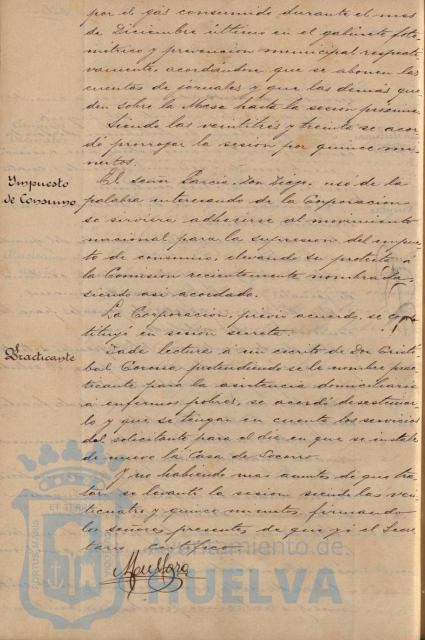 por el gas consumido durante el mes
de Diciembre último en el gabinete foto-
métrico y prevención municipal respecti-
vamente, acordándose que se abonen las
cuentas de jornales y que las demás que-
den sobre la Mesa hasta la sesión próxima.
Siendo las veintitrés y treinta se acor-
dó prorrogar la sesión por quince mi-
nutos.
Impuesto
de Consumo
El señor García, Don Diego, usó de la
palabra interesando de la Corporación
se sirviera adherirse al movimiento
nacional para la supresión del impues-
to de consumo, elevando su protesta á
la Comisión recientemente nombrada,
siendo así acordado.
La Corporación, previo acuerdo, se cons-
tituyó en sesión secreta.
Practicante
Dada lectura á un escrito de Don Cristó-
bal pretendiendo se le nombre prac-
ticante para la asistencia domiciliaria
á enfermos pobres, se acordó desestimar-
lo y que se tengan en cuenta los servicios
del solicitante para el día en que se instale
de nuevo la Casa de Socorro.
Y no habiendo más asuntos de que tra-
tar se levantó la sesión siendo las vein-
ticuatro y quince minutos, firmando
los señores presentes de que yo el Secre-
tario certifico.
Ayuntamiento de
HUELVA